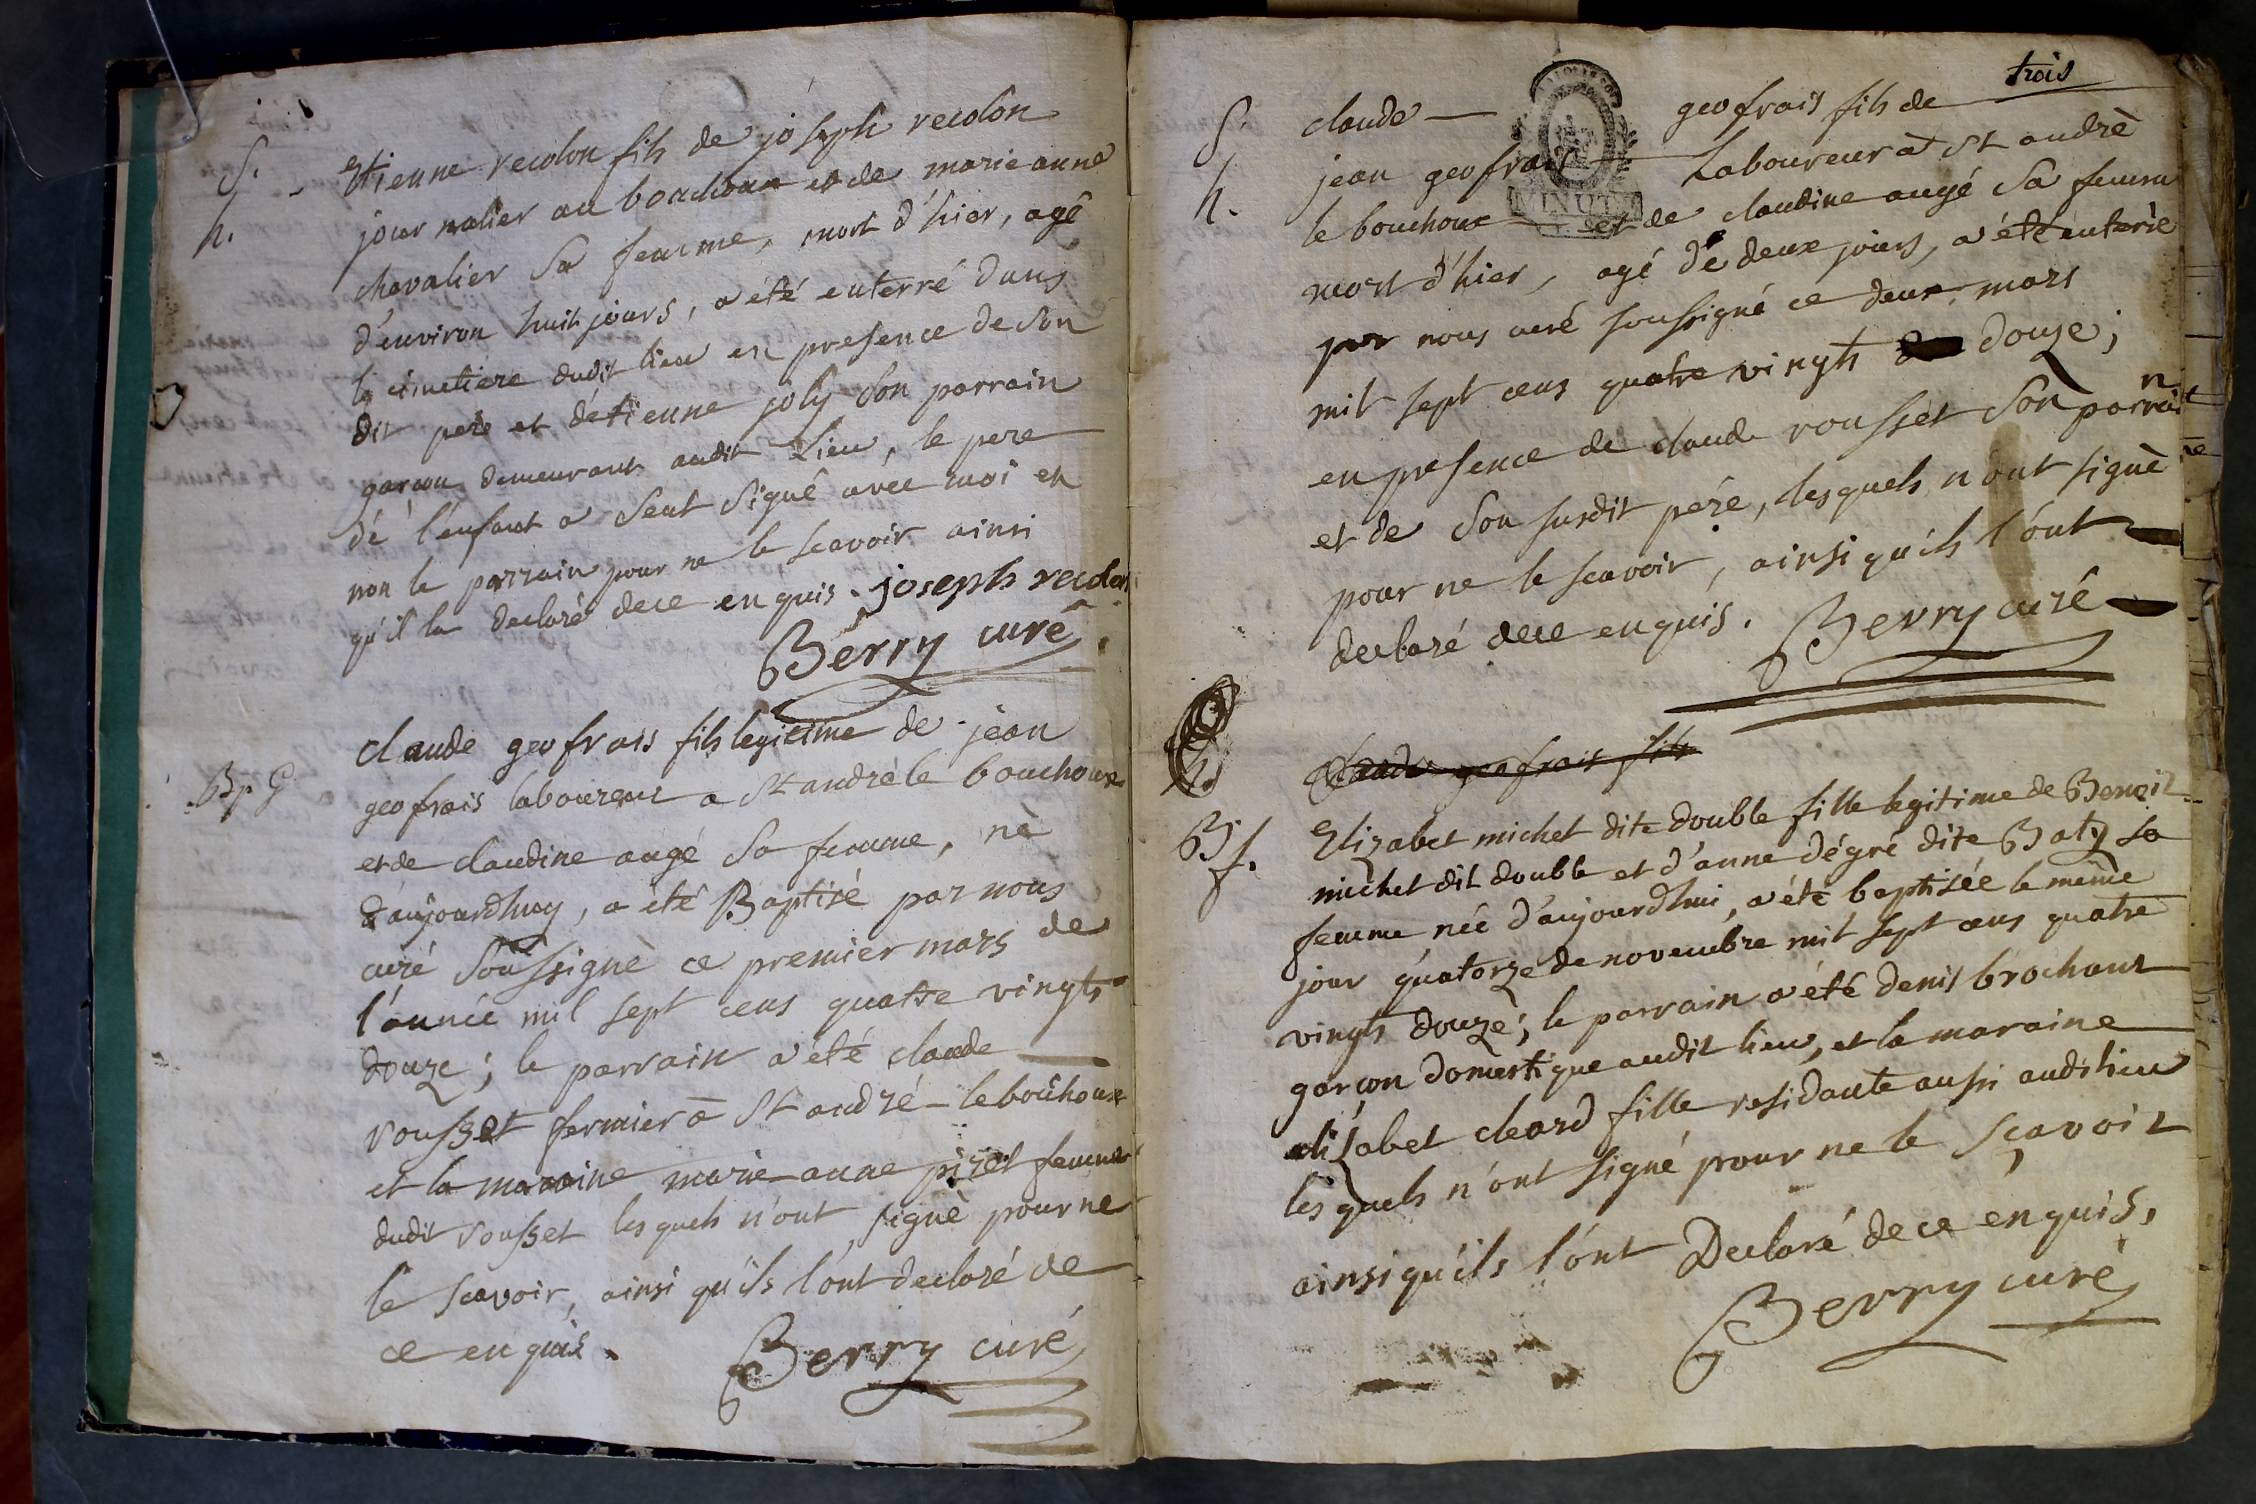 S. Etienne recolon fils de joseph recolon
h. journalier au bouchoux et de marie anne
chevalier sa femme, mort d'hier, agé
d'environ huit jours, a été enterré dans
le cimetiere dudit lieu en presence de son
dit pere et d'étienne joly son parrain
garçon demeurant audit lieu, le pere
dé l'enfant a seul signé avec moi et
non le parrain pour ne le scavoir ainsi
qu'il la declaré dece enquis. joseph recolon
Berry curé
claude geofrais fils legitime de jean
Bp. G geofrais laboureur a St andré le bouchoux
et de claudine augé sa femme, né
d'aujourdhuy, a été Baptisé par nous
curé soussigné ce premier mars de
l'année mil sept cens quatre vingts
douze; le parrain a été claude
rousset fermier a St andré-le bouchoux
et la maraine marie anne piret femme
dudit rousset lesquels n'ont signé pour ne
le scavoir, ainsi qu'ils l'ont declaré de
ce enquis. Berry curé
trois
S. claude geofrais fils de
h. jean geofrais Laboureur à St andré
MINUTE
le bouchoux et de claudine augé sa femme
mort d'hier, agé de deux jours, a été enterré
par nous curé soussigné ce deux mars
mil sept cens quatre vingts douze;
en presence de claude rousset son parrain
et de son susdit pére, lesquels n'ont signé
pour ne le scavoir, ainsi qu'ils l'ont
declaré dece enquis. Berry curé
claude geofrais fils
B. Elizabet michel dite double fille legitime de Benoit
f. michel dit double et d'anne dégré dite Baty sa
femme née d'aujourdhui, a été baptisée le même
jour quatorze de novembre mil sept cens quatre
vingts douze; le parrain a été denis brochant
garçon domestique audit lieu, et la maraine
elisabet cleard fille residante aussi audit lieu
lesquels n'ont signé pour ne le sçavoir
ainsi qu'ils l'ont Declaré de ce enquis,
Berry curé